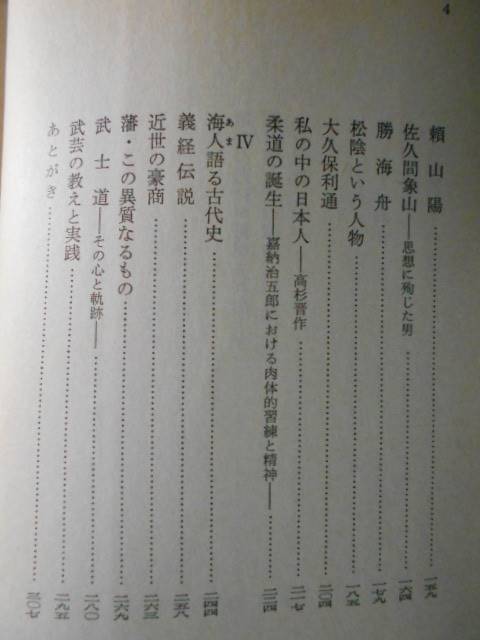 4
頼山陽……一五九
佐久間象山――思想に殉じた男……一六四
勝海舟……一七九
松陰という人物……一八五
大久保利通……二〇四
私の中の日本人――高杉晋作……二一七
柔道の誕生――嘉納治五郎における肉体的習練と精神――……二二四
Ⅳ
海人語る古代史……二四四
あま
義経伝説……二五八
近世の豪商……二六三
藩・この異質なるもの……二六九
武士道――その心と軌跡――……二八〇
武芸の教えと実践……二九五
あとがき……三〇七